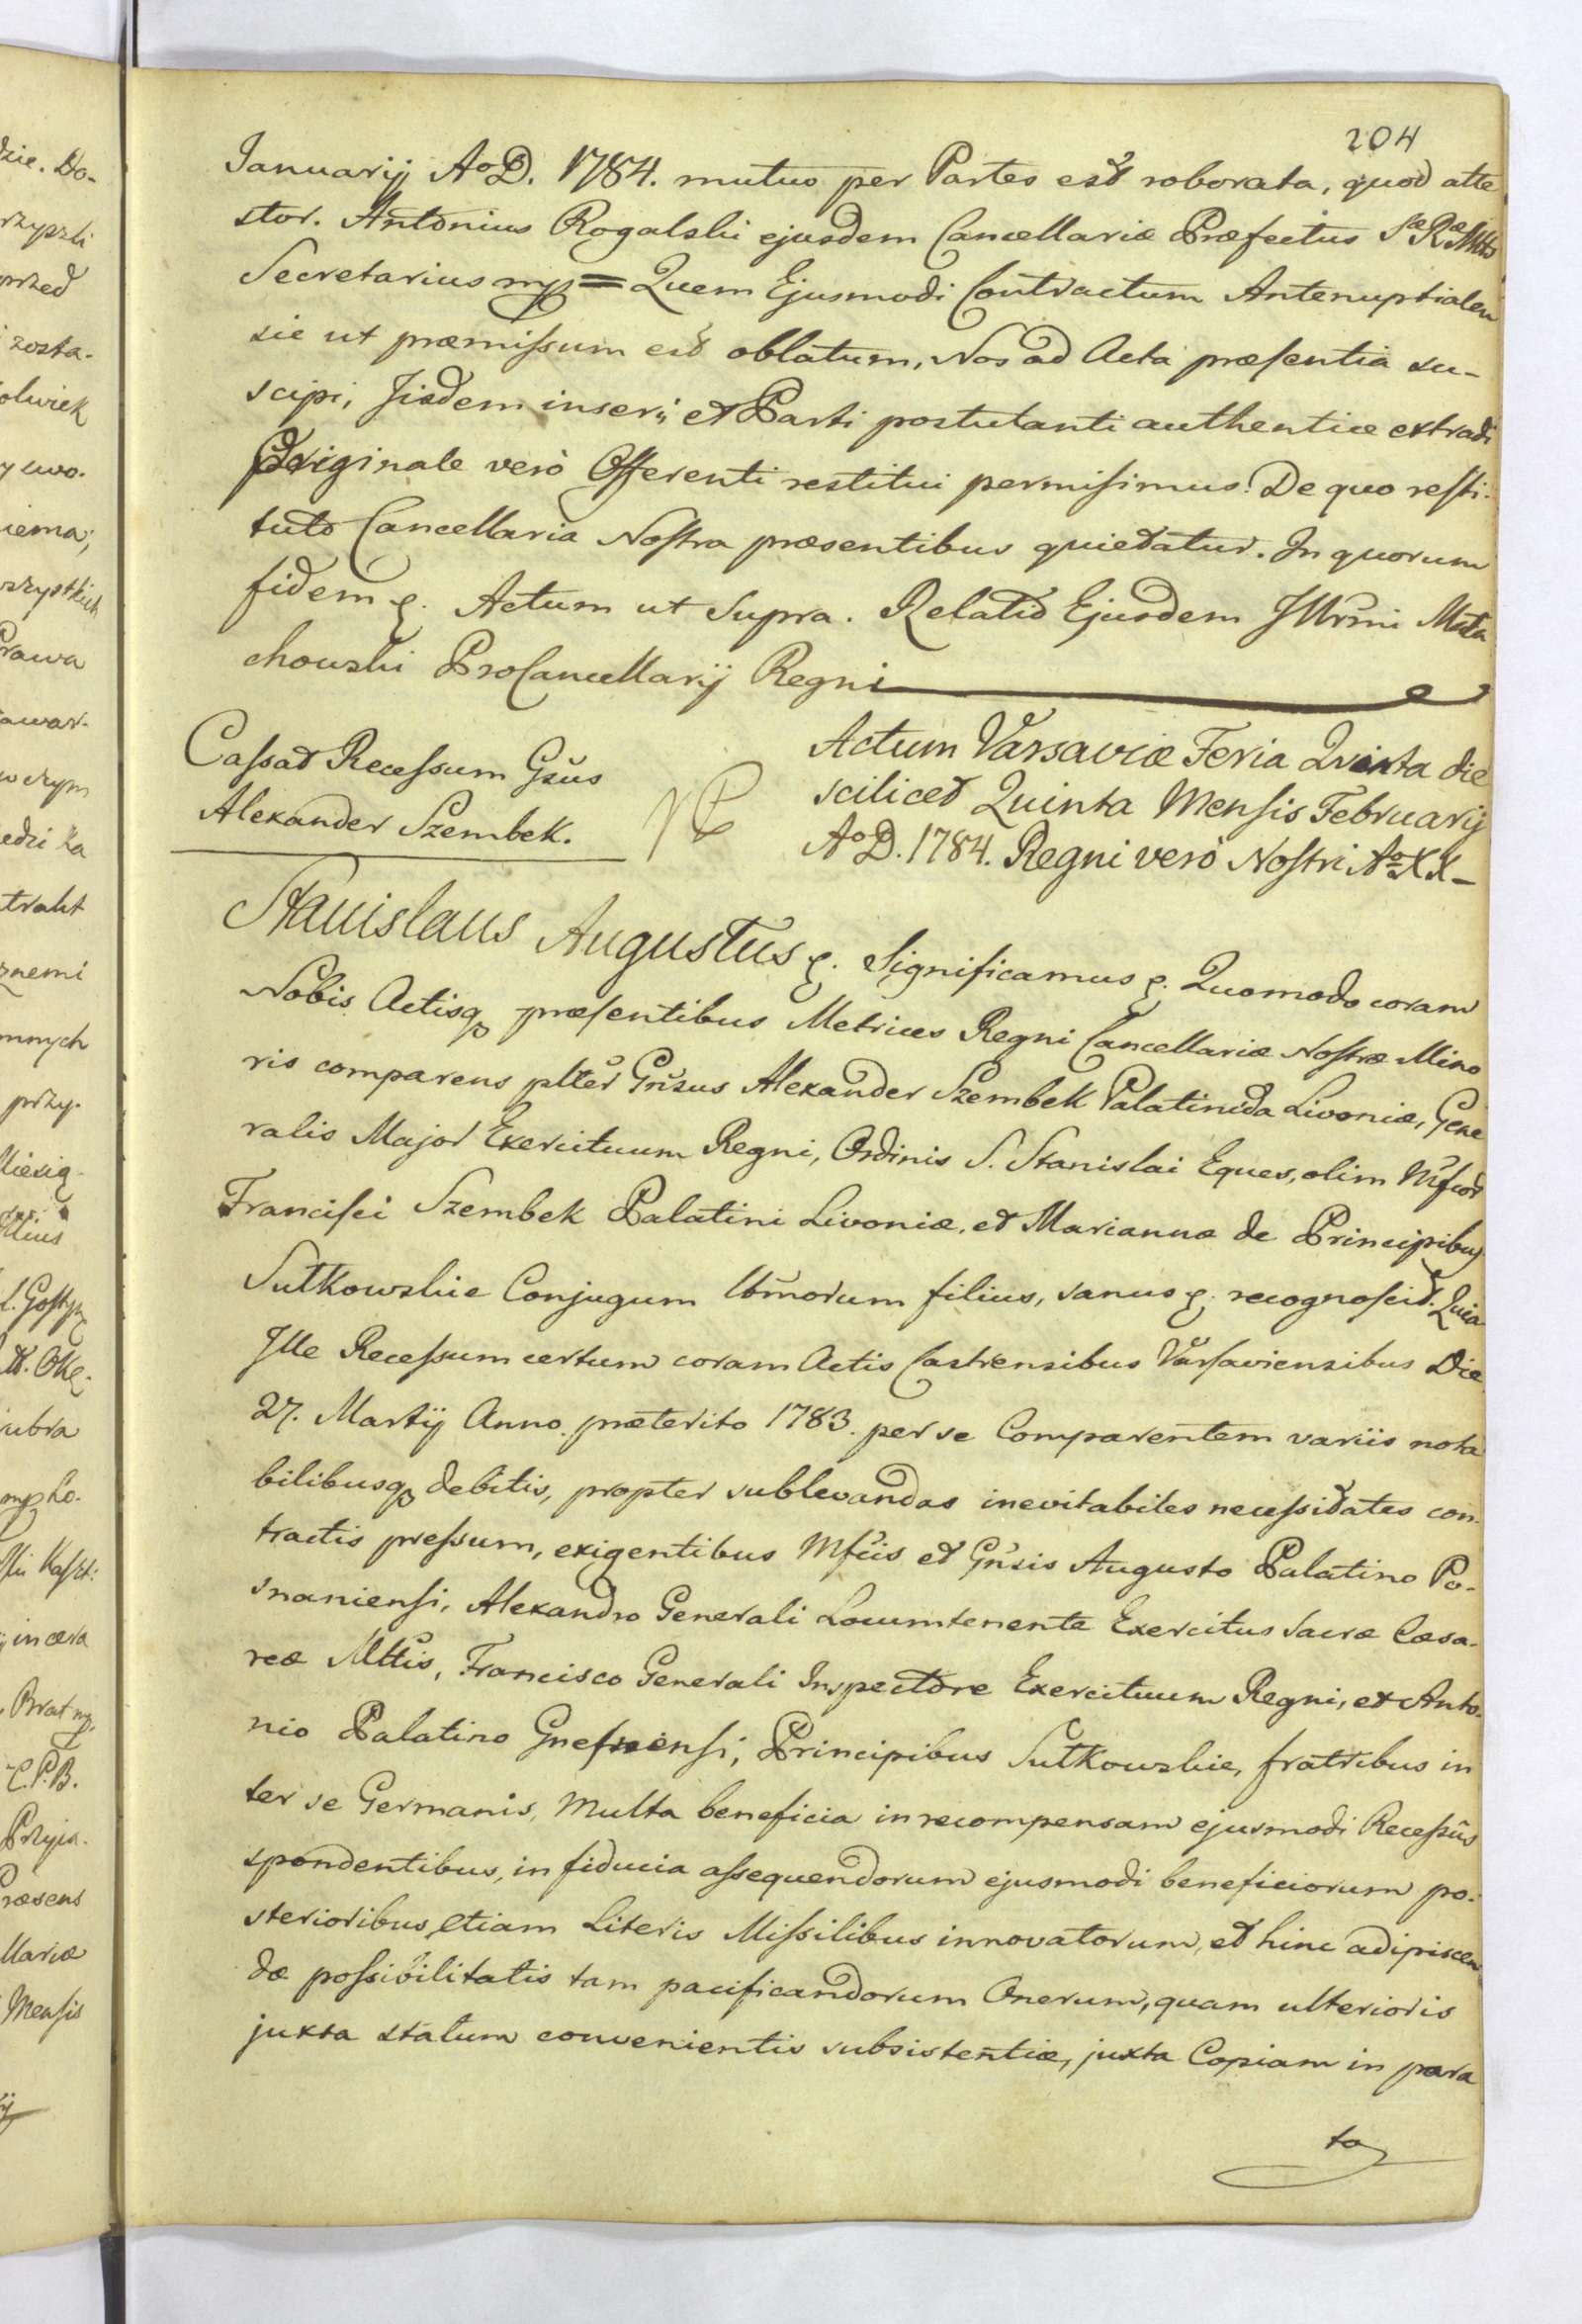 204
Januarij AoD. 1784. mutuo per Partes est roborata, quod atte
stor. Antonius Rogalski ejusdem Cancellariæ Præfectus Sæ Ræ Mttis
Secretarius mp = Quem Ejusmodi Contractum Antenuptialem
sic ut præmissum est oblatum, Nos ad Acta præsentia su-
scipi, Jisdem inseri, et Parti postulanti authentice extradi
Originale verò Offerenti restitui permisimus. De quo resti-
tuto Cancellaria Nostra præsentibus quietatur. In quorum
fidem &. Actum ut Supra. Relatio Ejusdem JUrmi Mała
chowski ProCancellarij Regni
Cassat Recessum Gsus
Alexander Szembek.
Actum Varsaviæ Feria Quinta die
scilicet Quinta Mensis Februarij
AoD. 1784. Regni verò Nostri Ao XX-
Stanislaus Augustus &. Significamus &. Quomodo coram
Nobis Actisq præsentibus Metrices Regni Cancellariæ Nostræ Mino
ris comparens plter Gnsus Alexander Szembek Palatinida Livoniæ, Gene
ralis Major Exercituum Regni, Ordinis S. Stanislai Eques, olim Mfcor
Francisci Szembek Palatini Livoniæ, et Mariannæ de Principibus
Sułkowskie Conjugum lbmorum filius, sanus &. recognoscit. Quia
Jlle Recessum certum coram Actis Castrensibus Varsaviensibus Die
27. Martij Anno præterito 1783. per se Comparentem variis nota
bilibusq debitis, propter sublevandas inevitabiles necessitates con-
tractis pressum, exigentibus Mfcis et Gnsis Augusto Palatino Po-
snaniensi, Alexandro Generali Locumtenente Exercitus Sacræ Cæsa-
reæ Mttis, Francisco Generali Inspectore Exercituum Regni, et Anto-
nio Palatino Gnesnensi, Principibus Sułkowskie, fratribus in
ter se Germanis, Multa beneficia in recompensam ejusmodi Recessûs
spondentibus, in fiducia assequendorum ejusmodi beneficiorum po-
sterioribus etiam Literis Missilibus innovatorum, et hinc adipiscen
dæ possibilitatis tam pacificandorum Onerum, quam ulterioris
juxta statum convenientis subsistentiæ, juxta Copiam in para
to